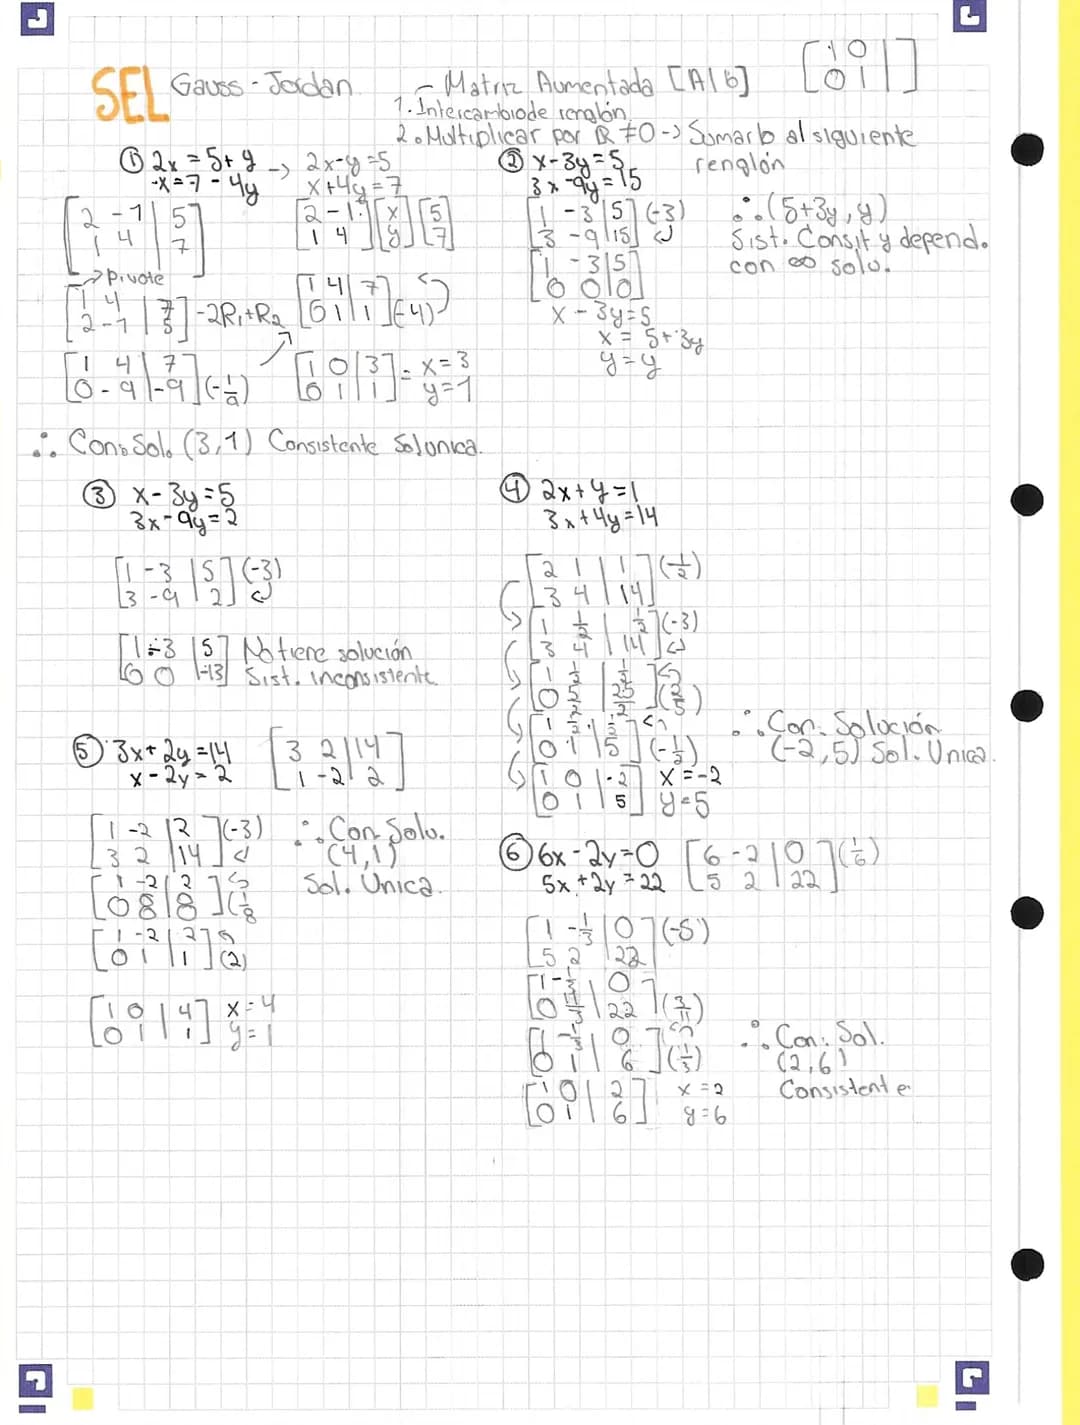 SEL Gauss-Jordan
- Matriz Aumentada [A|b] [1 0 | ; 0 1 | ]
1. Intercambio de renglón
2. Multiplicar por ℝ ≠0 -> Sumarlo al siguiente renglón
① 2x = 5+y -> 2x-y=5
-x=7-4y x+4y=7
[2 -1 | 5 ; 1 4 | 7] [2 -1 ; 1 4] [x ; y] [5 ; 7]
-> Pivote
[1 4 | 7 ; 2 -1 | 5] -2R₁+R₂ [1 4 | 7 ; 0 1 | 1] (-4)
[1 4 | 7 ; 0 -9 | -9] (-1/9) [1 0 | 3 ; 0 1 | 1] = x=3
y=1
∴ Con. Sol. (3,1) Consistente Sol unica.
② x-3y=5
3x-9y=15
[1 -3 | 5 ; 3 -9 | 15] (-3)
[1 -3 | 5 ; 0 0 | 0]
x-3y=5
x = 5+3y
y=y
∴ (5+3y, y)
Sist. Consit y depend.
con ∞ solu.
③ x-3y=5
3x-9y=2
[1 -3 | 5 ; 3 -9 | 2] (-3)
[1 -3 | 5 ; 0 0 | -13] No tiene solución
Sist. inconsistente
④ 2x+y=1
3x+4y=14
[2 1 | 1 ; 3 4 | 14] (1/2)
[1 1/2 | 1/2 ; 3 4 | 14] (-3)
[1 1/2 | 1/2 ; 0 5/2 | 25/2] (2/5)
[1 1/2 | 1/2 ; 0 1 | 5] (-1/2)
[1 0 | -2 ; 0 1 | 5] x=-2
y=5
∴ Con: Solución
(-2,5) Sol. Unica.
⑤ 3x+2y=14
x-2y=2
[3 2 | 14 ; 1 -2 | 2]
[1 -2 | 2 ; 3 2 | 14] (-3)
[1 -2 | 2 ; 0 8 | 8] (1/8
[1 -2 | 2 ; 0 1 | 1] (2)
[1 0 | 4 ; 0 1 | 1] x=4
y=1
∴ Con Solu.
(4,1)
Sol. Unica.
⑥ 6x-2y=0
5x+2y=22
[6 -2 | 0 ; 5 2 | 22] (1/6)
[1 -1/3 | 0 ; 5 2 | 22] (-5)
[1 -1/3 | 0 ; 0 11/3 | 22] (3/11)
[1 -1/3 | 0 ; 0 1 | 6] (1/3)
[1 0 | 2 ; 0 1 | 6] x=2
y=6
∴ Con: Sol.
(2,6)
Consistente